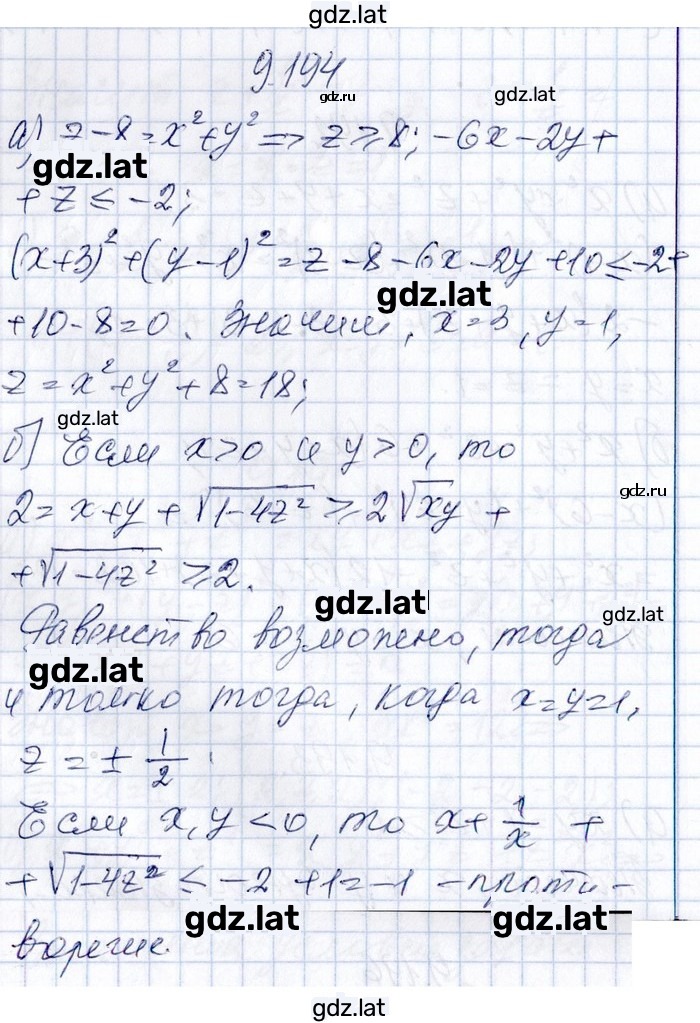 gdz.lat
9.194
gdz.ru
gdz.lat
а) z-8=x²+y² => z≥8; -6x-2y+
gdz.lat
+z≤-2;
(x+3)²+(y-1)²=z-8-6x-2y+10≤-2+
gdz.lat
+10-8=0. Значит, x=3, y=1,
z=x²+y²+8=18;
gdz.lat
б) Если x>0 и y>0, то
gdz.ru
2=x+y+√(1-4z²) ≥2√xy+
+√(1-4z²) ≥2.
gdz.lat
gdz.lat
Равенство возможено, тогда
gdz.lat
и только тогда, когда x=y=1,
z=±1/2.
Если x,y<0, то x+1/x+
+√(1-4z²) ≤-2+1=-1 -проти-
gdz.lat
gdz.lat
воречие.
gdz.lat